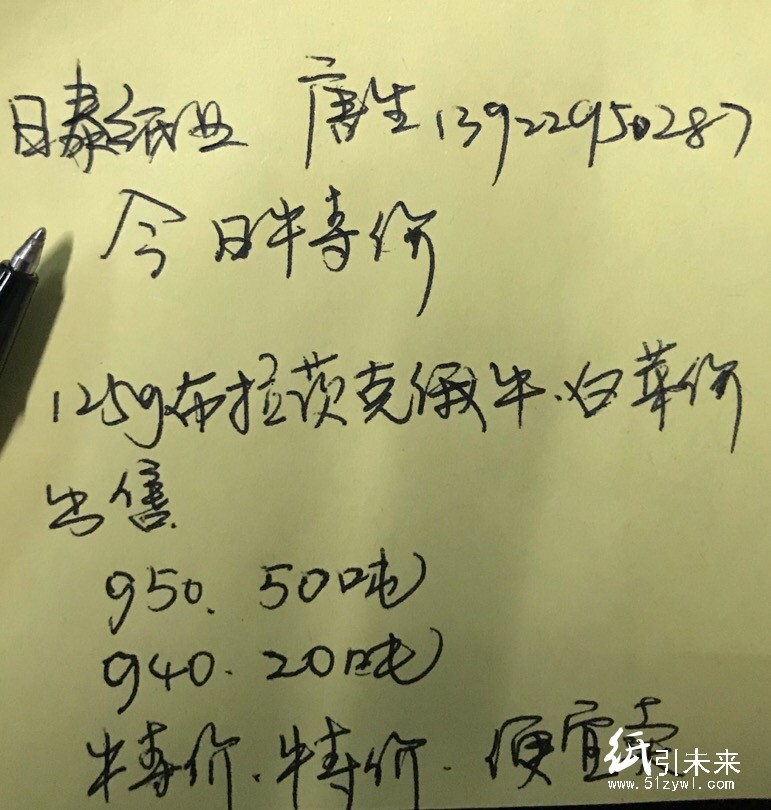 日泰纸业 唐生13922950287
今日特价
125g布拉茨克俄牛.白菜价
出售
950. 50吨
940. 20吨
特价.特价.便宜卖
纸引未来
www.51zywl.com